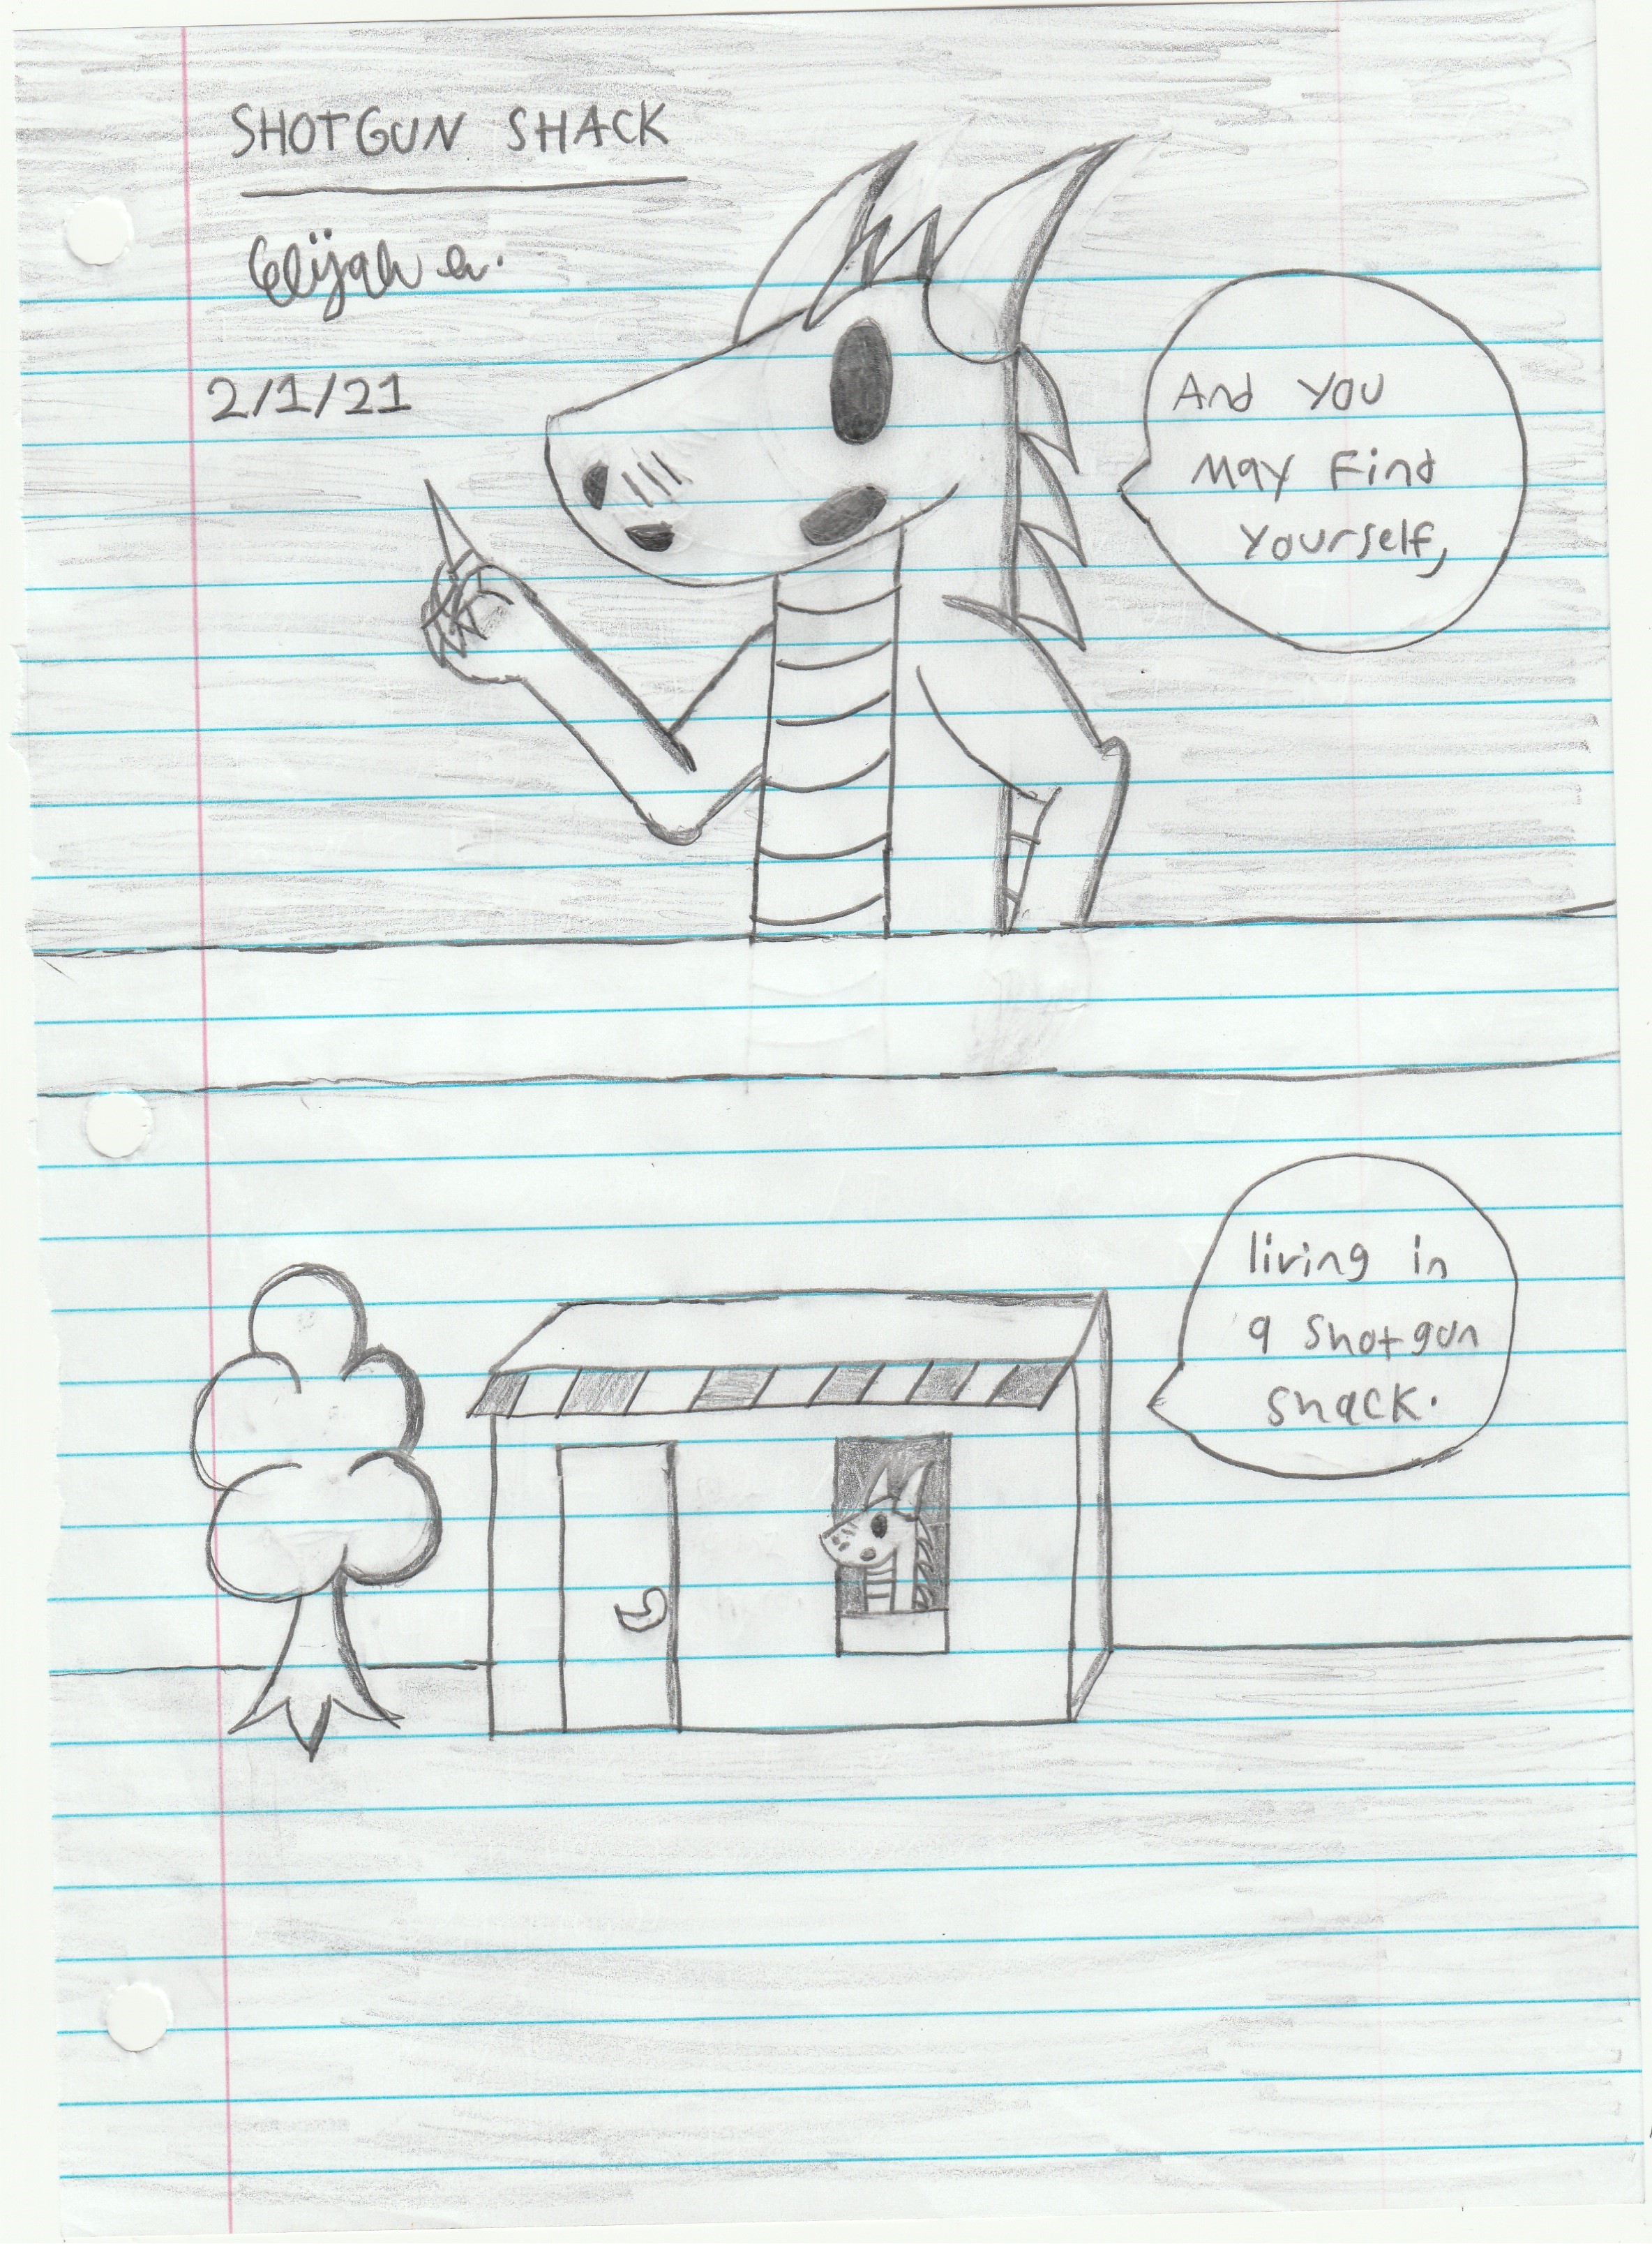 SHOTGUN SHACK
Elijah a.
2/1/21
And you
may Find
yourself,
living in
a shotgun
shack.